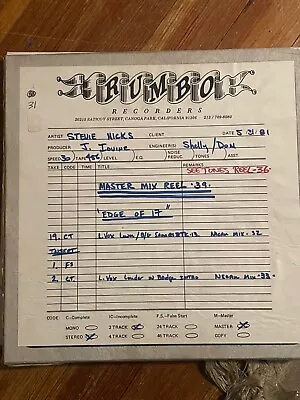 31
RUMBO
RECORDERS
20215 SATICOY STREET, CANOGA PARK, CALIFORNIA 91306 213 / 709-8080
ARTIST STEVIE NICKS CLIENT DATE 5.21.81
PRODUCER J. Iovine ENGINEER(S) Shelly / Don
SPEED 30 TAPE 456 LEVEL E.Q. NOISE REDUC. TONES ASST.
TAKE CODE TIME REMARKS SEE TONES REEL-36-
MASTER MIX REEL -39-
"EDGE OF 17"
19. CT L.Vox Down / B/G MIX-32
INSERT
1. FS
2. CT. L.Vox Louder w INTRO MIX-33-
CODE: C—Complete IC—Incomplete F.S.—False Start M—Master
MONO 2 TRACK 24 TRACK MASTER
STEREO 4 TRACK 46 TRACK COPY